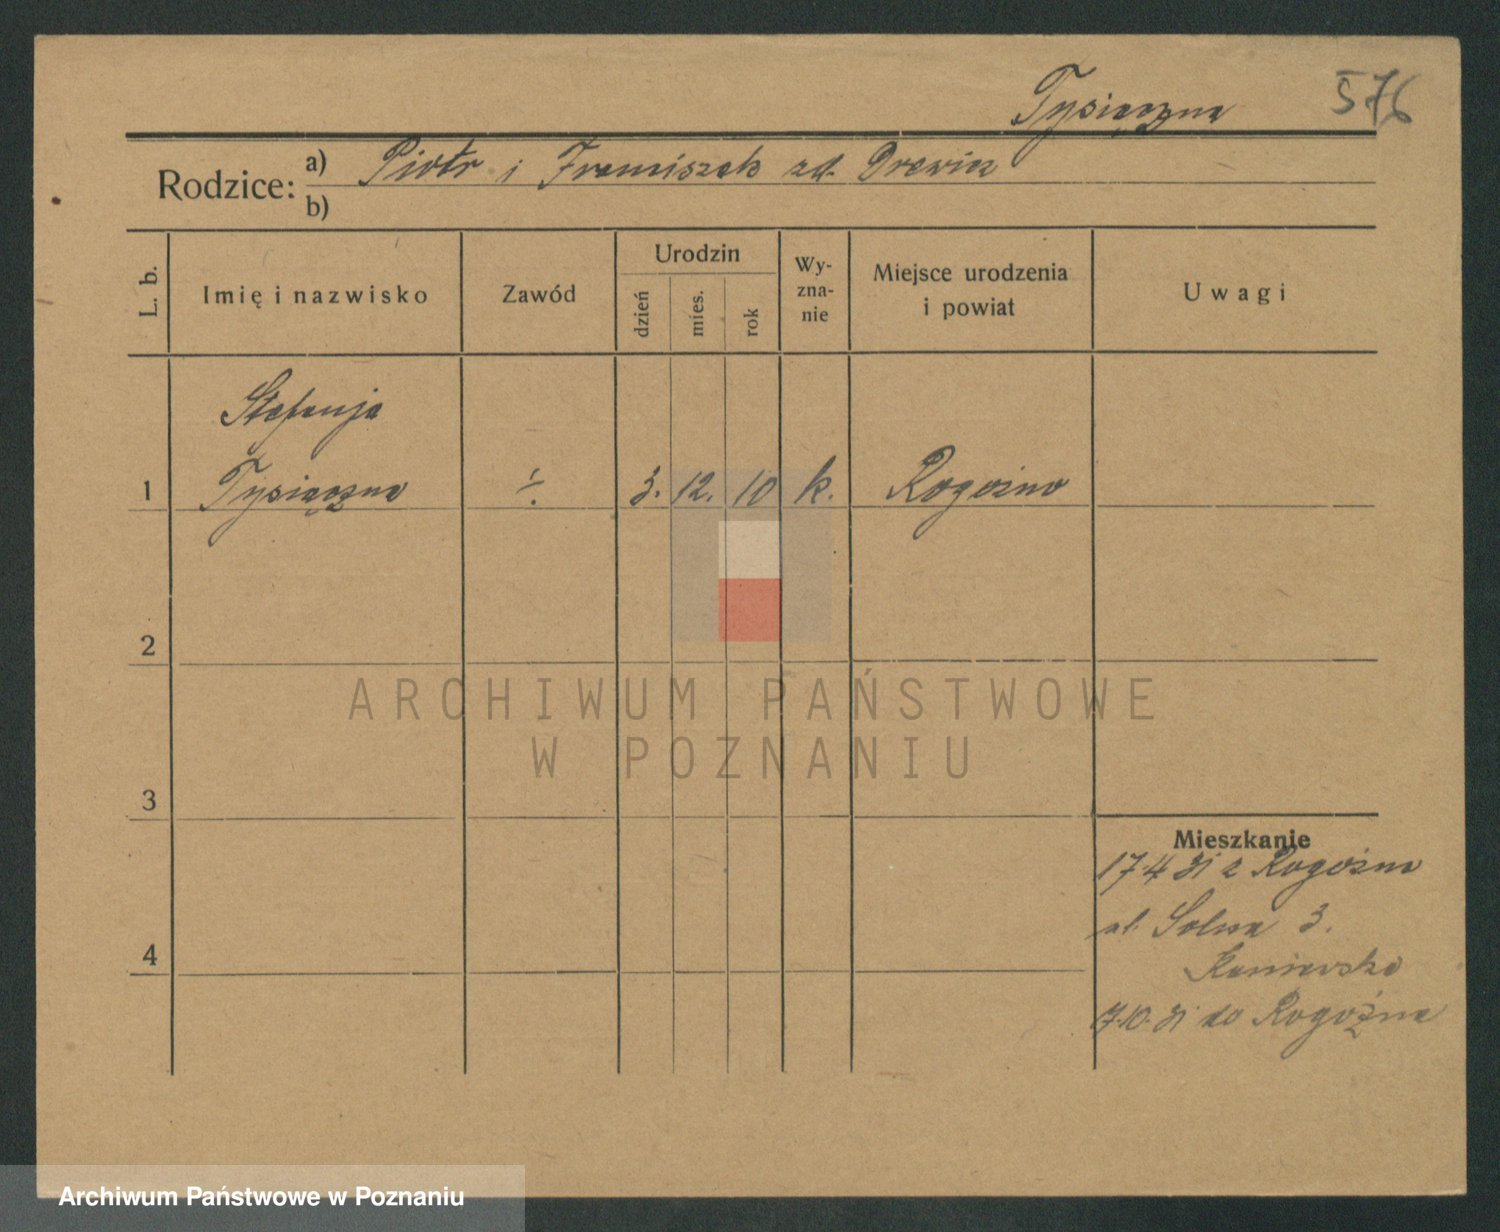 Tysiączna 576
Rodzice: a) Piotr i Franciszek zd. Drewicz
b)
L. b. Imię i nazwisko Zawód Urodzin dzień mies. rok Wy-zna-nie Miejsce urodzenia i powiat Uwagi
Stefanja
1 Tysiączna ./. 3. 12. 10 k. Rogoźno
2
ARCHIWUM PAŃSTWOWE
W POZNANIU
3
Mieszkanie
17 4 31 z Rogoźna
ul. 3.
4 Kaniewska
7.10.31 do Rogoźna
Archiwum Państwowe w Poznaniu